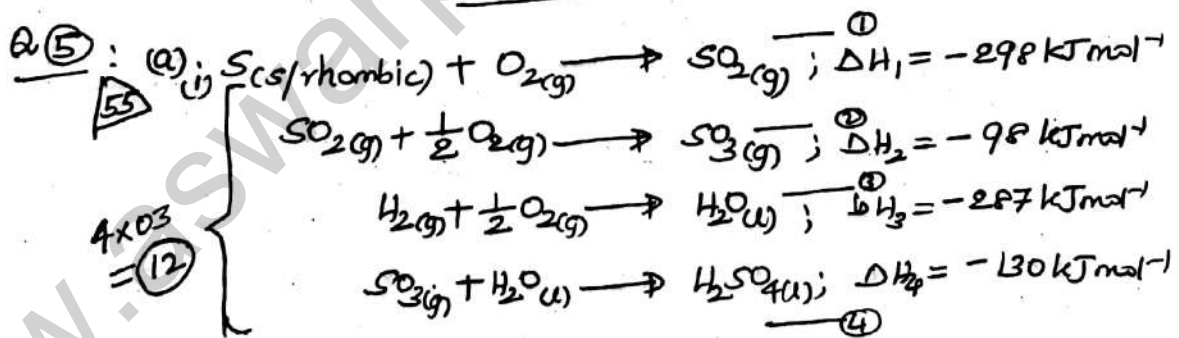 Q ⑤ : (a) (i) S(s/rhombic) + O₂(g) → SO₂(g) —① ; ΔH₁ = -298 kJmol⁻¹
55
SO₂(g) + ½ O₂(g) → SO₃(g) —② ; ΔH₂ = -98 kJmol⁻¹
H₂(g) + ½ O₂(g) → H₂O(l) —③ ; ΔH₃ = -287 kJmol⁻¹
4×03
= ⑫
SO₃(g) + H₂O(l) → H₂SO₄(l) ; ΔH₄ = -130 kJmol⁻¹
—④